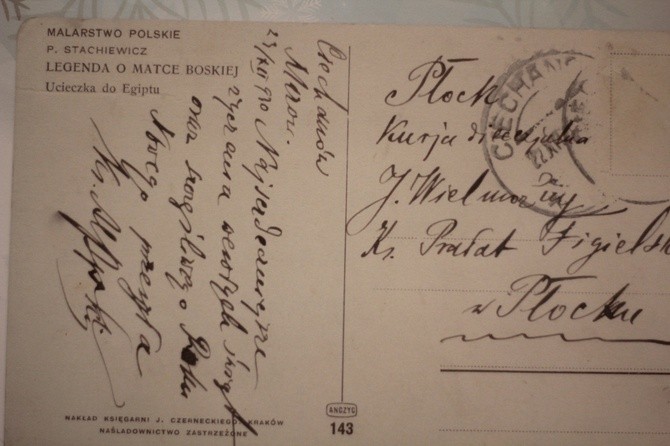 MALARSTWO POLSKIE
P. STACHIEWICZ
LEGENDA O MATCE BOSKIEJ
Ucieczka do Egiptu
Ciechanów
Mazow.
23/XII 930 Najserdeczniejsze
życzenia wesołych świąt
oraz szczęśliwego Roku
Nowego przesyła
Ks.
Płock
Kurja diecezjalna
J. Wielmożny
Ks. Prałat Figielski
w Płocku
CIECHANÓ
NAKŁAD KSIĘGARNI J. CZERNECKIEGO KRAKÓW
NAŚLADOWNICTWO ZASTRZEŻONE
ANCZYC
143